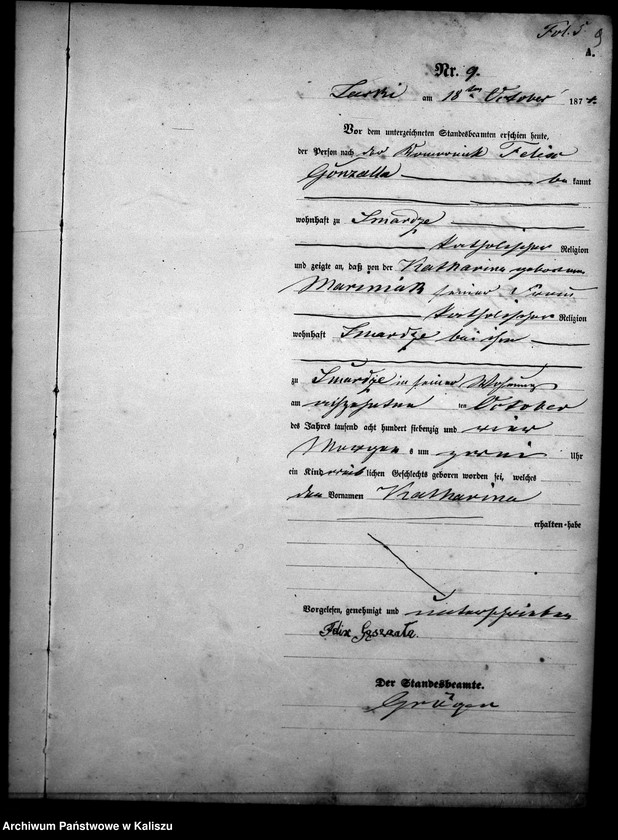 Fol. 5. 9
A.
Nr. 9.
am 18ten October 1874.
Vor dem unterzeichneten Standesbeamten erschien heute,
der Persönlichkeit nach der Komornik Felix
be kannt
wohnhaft zu Smardze
katholischer Religion
und zeigte an, daß von der Katharina geborenen
Marciniak seiner Frau
katholischer Religion
wohnhaft Smardze bei ihm
zu Smardze in seiner Wohnung
am achtzehnten ten October
des Jahres tausend acht hundert siebenzig und vier
Morgen s um zwei Uhr
ein Kind weib lichen Geschlechts geboren worden sei, welches
den Vornamen Katharina
erhalten habe
Vorgelesen, genehmigt und unterschrieben
Felix
Der Standesbeamte.
Archiwum Państwowe w Kaliszu